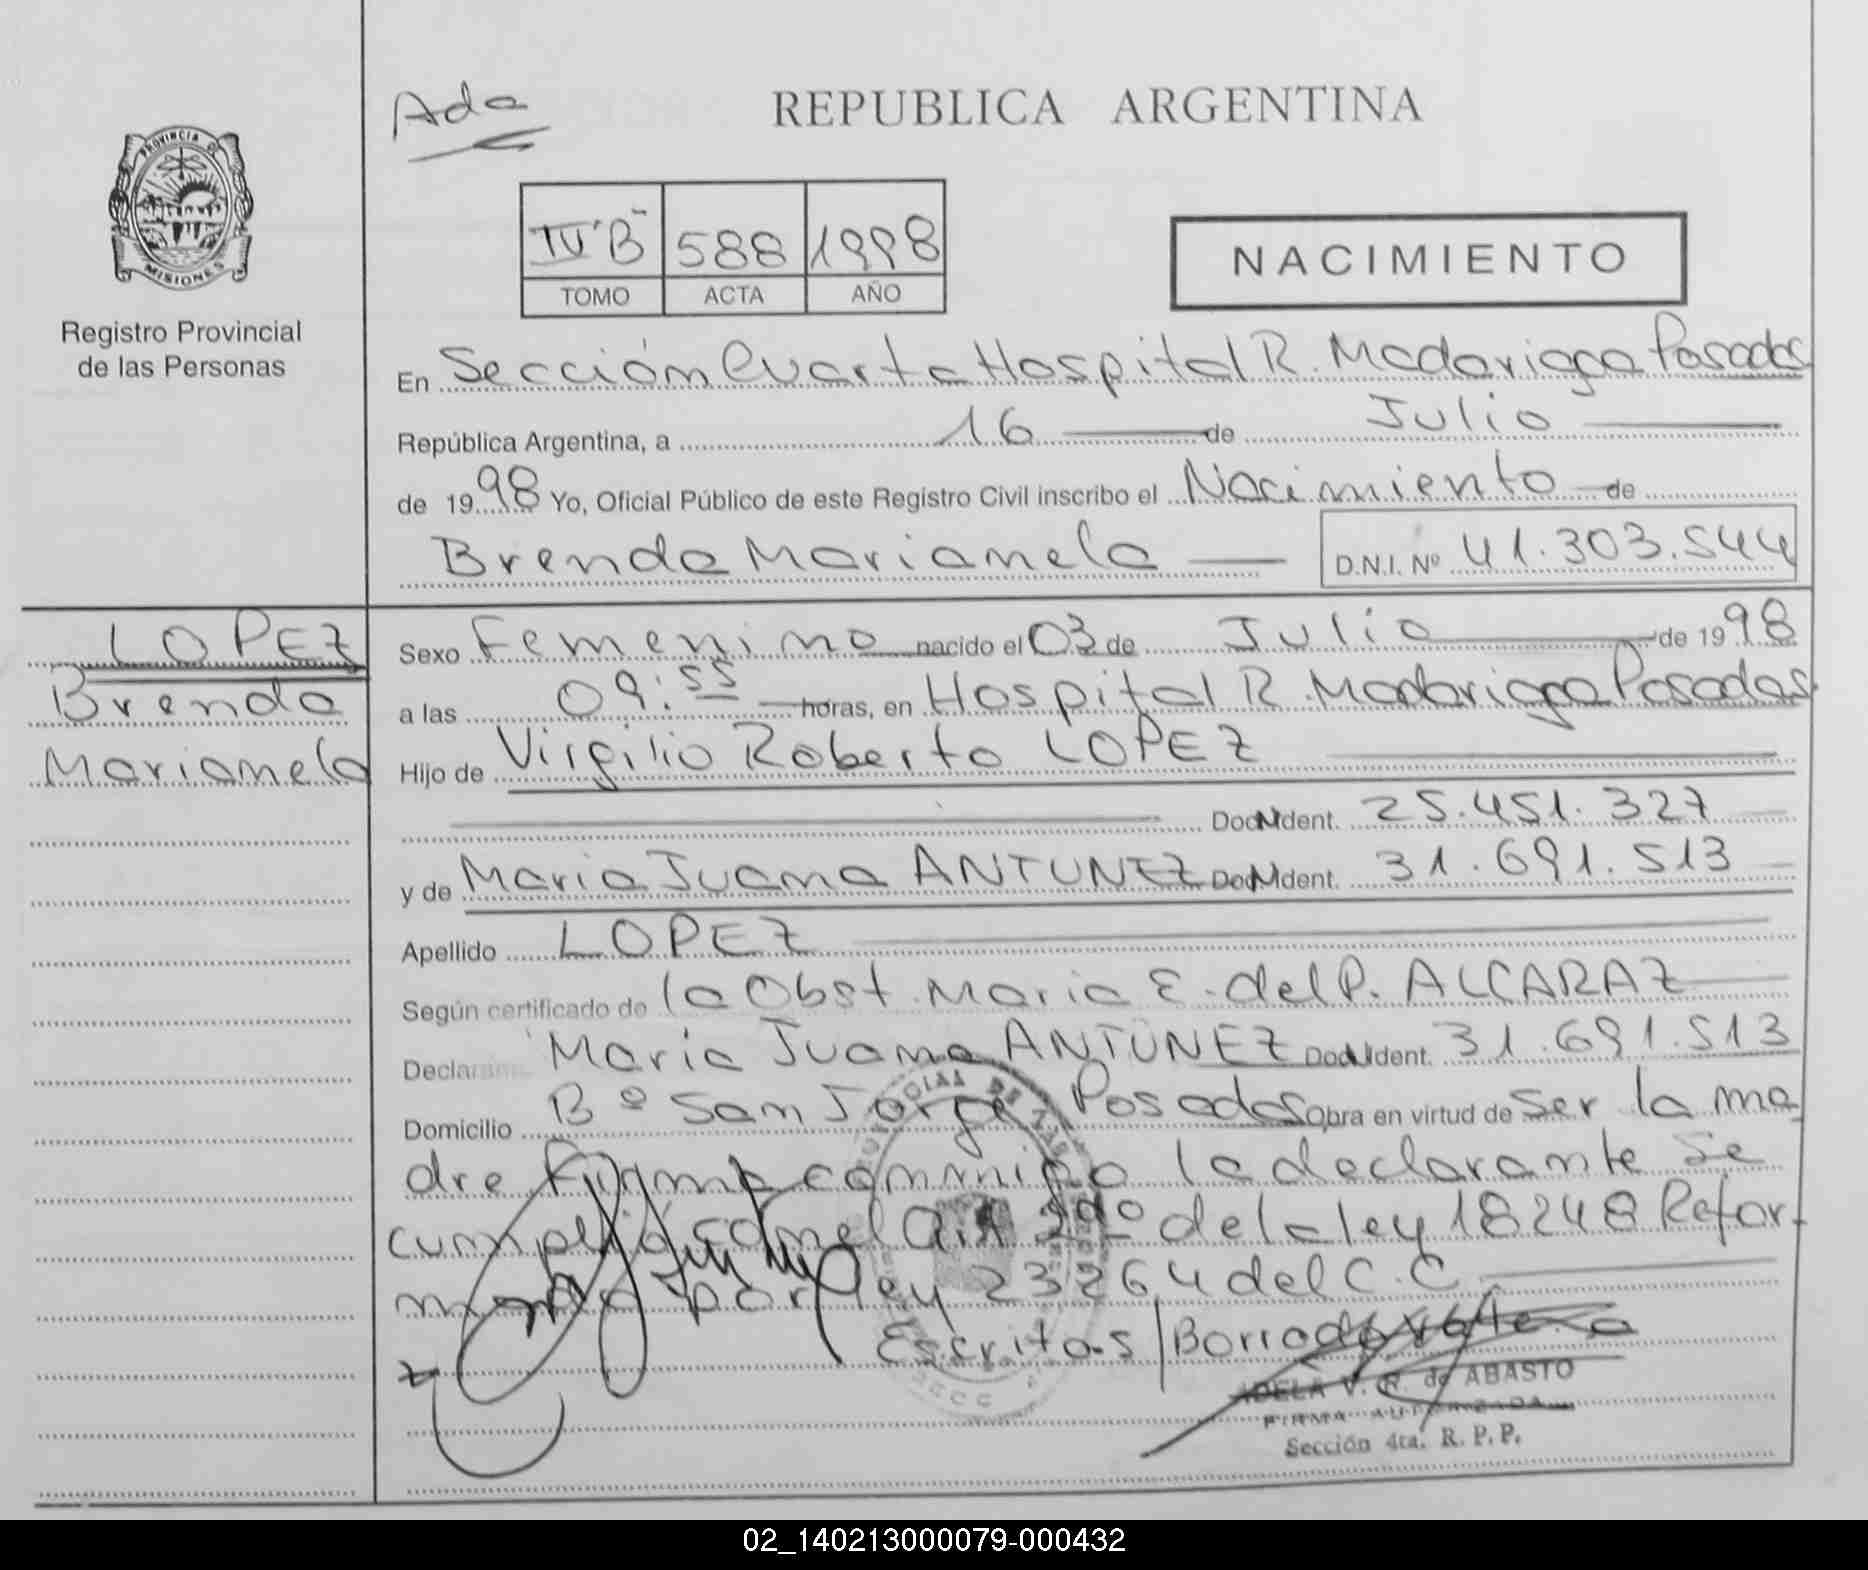 Ada
REPUBLICA ARGENTINA
PROVINCIA DE
MISIONES
Registro Provincial
de las Personas
IV "B" 588 1998
TOMO ACTA AÑO
NACIMIENTO
En Sección Cuarta Hospital R. Madariaga Posadas
República Argentina, a 16 de Julio
de 1998 Yo, Oficial Público de este Registro Civil inscribo el Nacimiento de
Brenda Marianela D.N.I. Nº 41.303.544
LOPEZ
Brenda
Marianela
Sexo Femenino nacido el 03 de Julio de 1998
a las 09:55 horas, en Hospital R. Madariaga Posadas
Hijo de Virgilio Roberto LOPEZ
Doc. Ident. 25.451.327
y de Maria Juana ANTUNEZ Doc. Ident. 31.691.513
Apellido LOPEZ
Según certificado de la Obst. Maria E. del P. ALCARAZ
Declarante Maria Juana ANTUNEZ Doc. Ident. 31.691.513
Domicilio Bº San Jorge Posadas Obra en virtud de Ser la ma
dre Firma conmigo la declarante Se
cumplió con el Art 2do de la ley 18248 Refor-
mado por ley 23264 del C.C.
Escritas/Borrado Vale
ADELA V. R. de ABASTO
FIRMA AUTORIZADA
Sección 4ta. R. P. P.
02_140213000079-000432